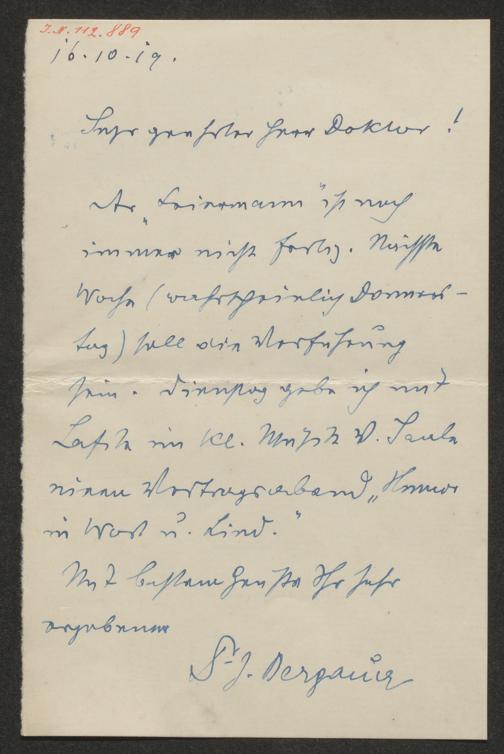 I.N. 112.889
16.10.19.
Sehr geehrter Herr Doktor!
Der „Leiermann" ist noch
immer nicht fertig. Nächste
Woche (wahrscheinlich Donners-
tag) soll die Vorführung
sein. Dienstag gebe ich mit
Lafite im kl. Musik V. Saale
einen Vortragsabend „Humor
in Wort u. Lied."
Mit bestem Gruße Ihr sehr
ergebener
J. Bergauer